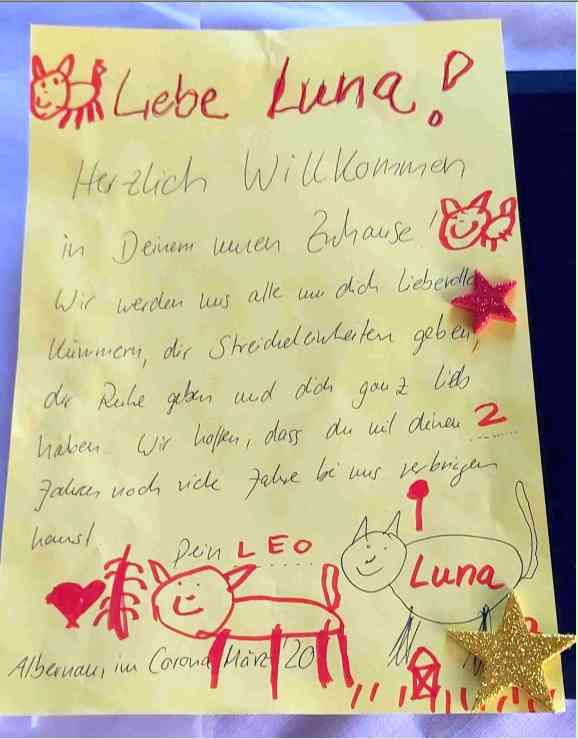 Liebe Luna!
Herzlich Willkommen
in Deinem neuen Zuhause!
Wir werden uns alle um dich liebevoll
kümmern, dir Streicheleinheiten geben,
dir Ruhe geben und dich ganz lieb
haben. Wir hoffen, dass du mit deinen 2
Jahren noch viele Jahre bei uns verbringen
kannst
Dein LEO
Luna
Albernau, im Corona März '20